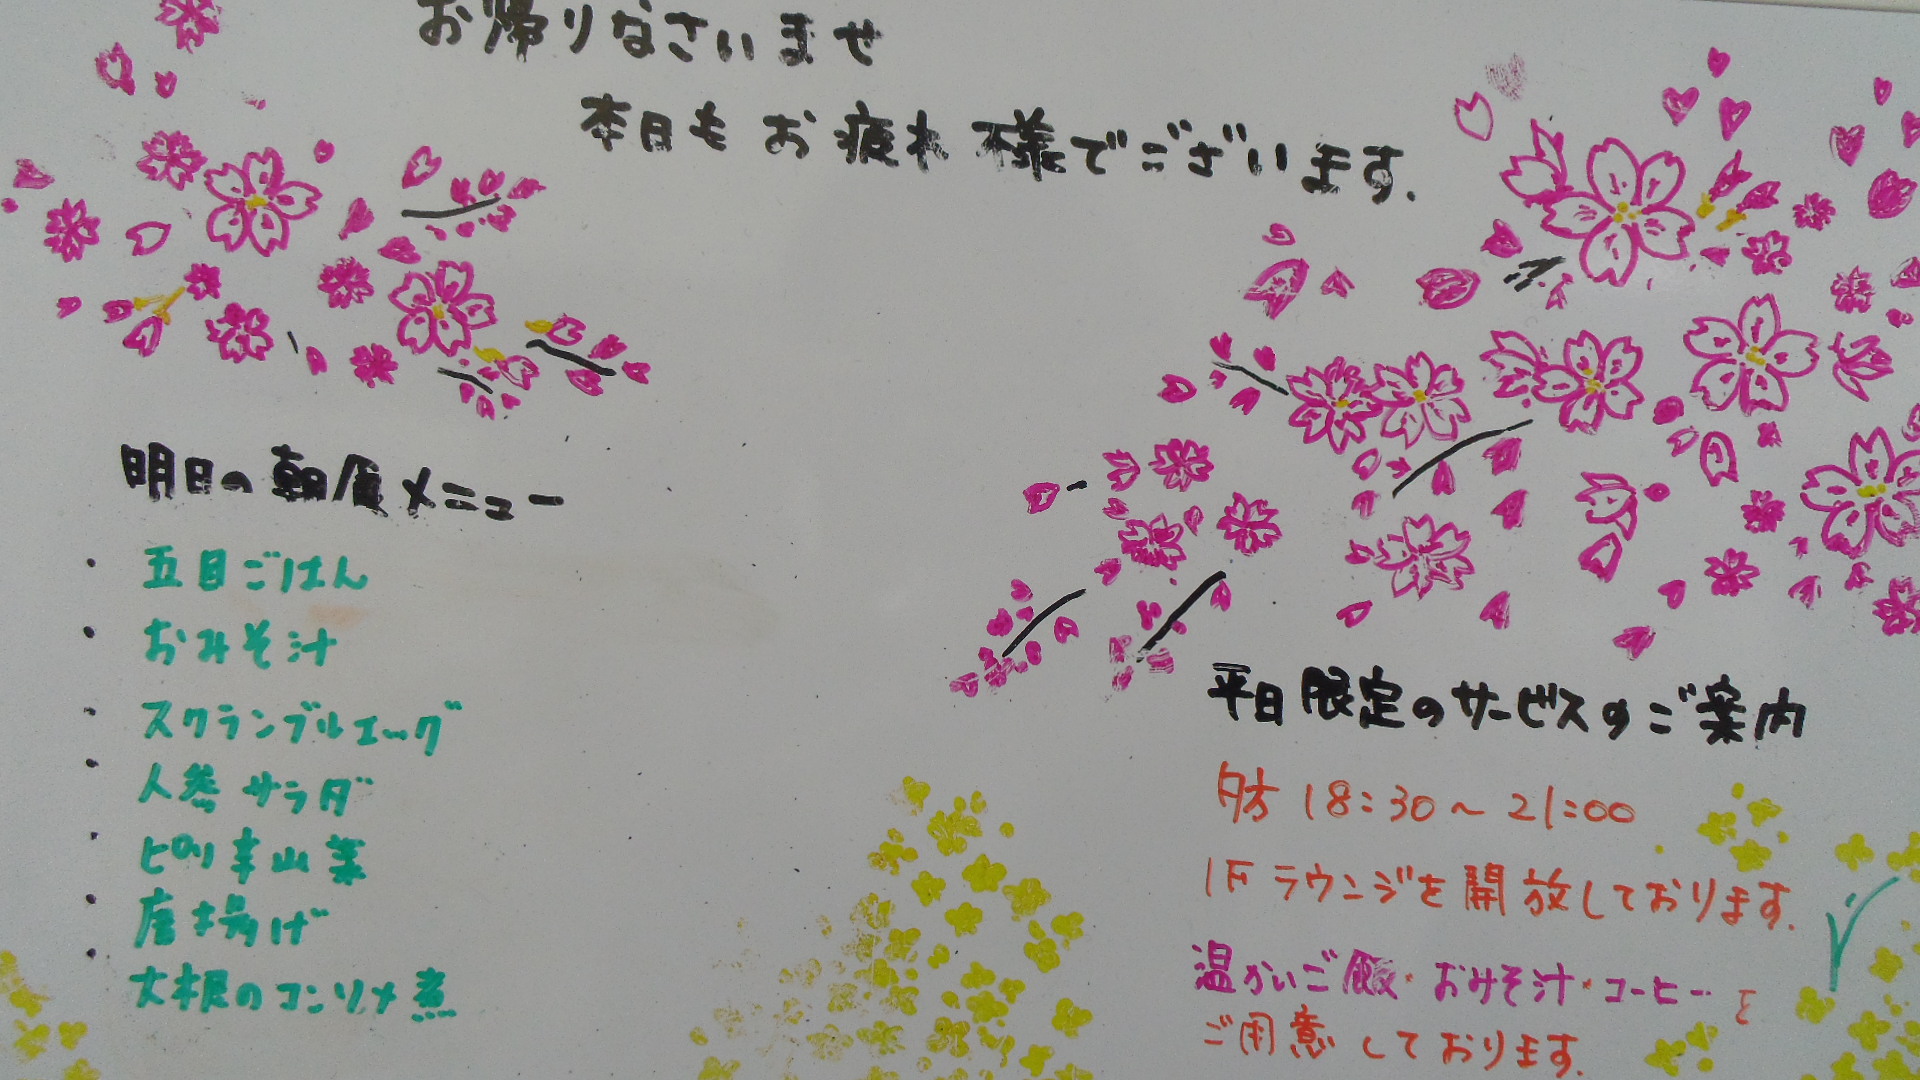 お帰りなさいませ
本日もお疲れ様でございます.
明日の朝食メニュー
・五目ごはん
・おみそ汁
・スクランブルエッグ
・人参サラダ
・ピリ辛山菜
・唐揚げ
・大根のコンソメ煮
平日限定のサービスのご案内
夕方 18:30～21:00
1Fラウンジを開放しております.
温かいご飯・おみそ汁・コーヒーを
ご用意しております.